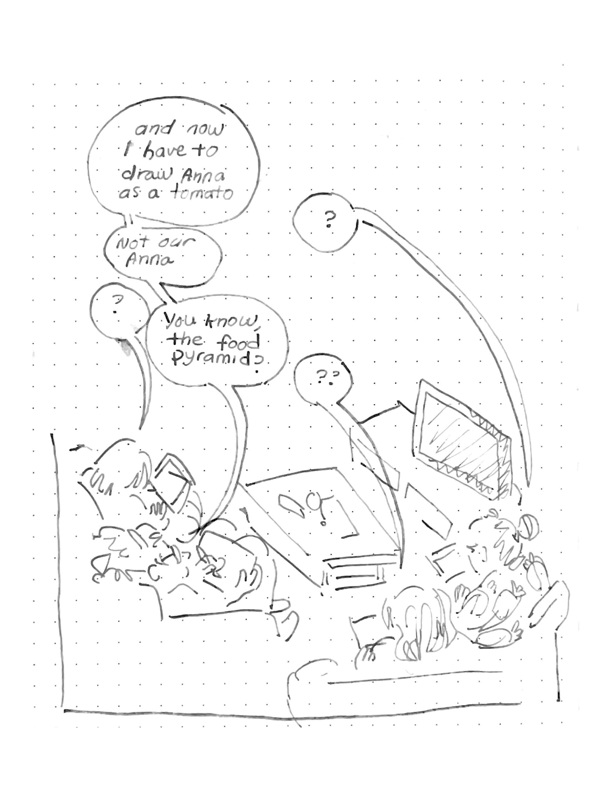 and now
I have to
draw Anna
as a tomato
Not our
Anna
?
You know,
the food
pyramid?
?
??